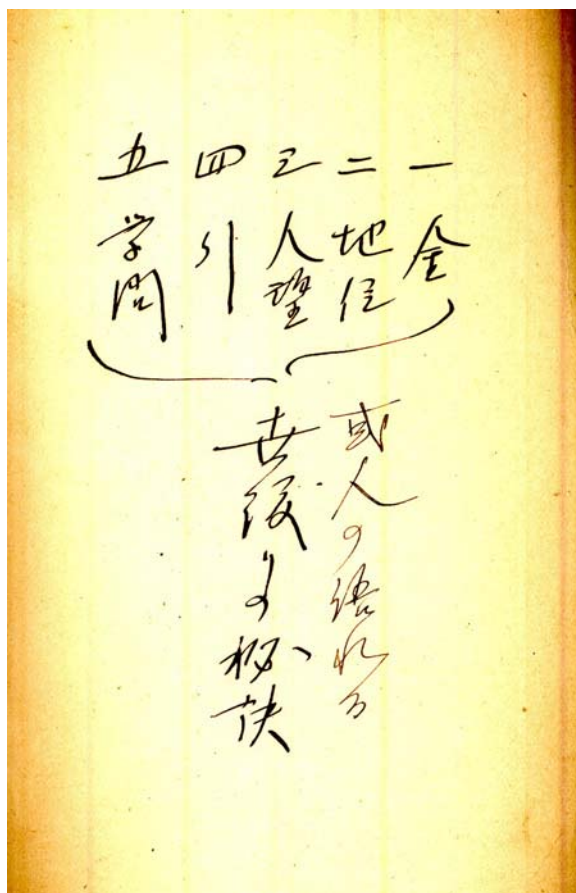 一 金
二 地位
三 人望
四 引
五 学問
或人の語れる
世渡りの秘訣